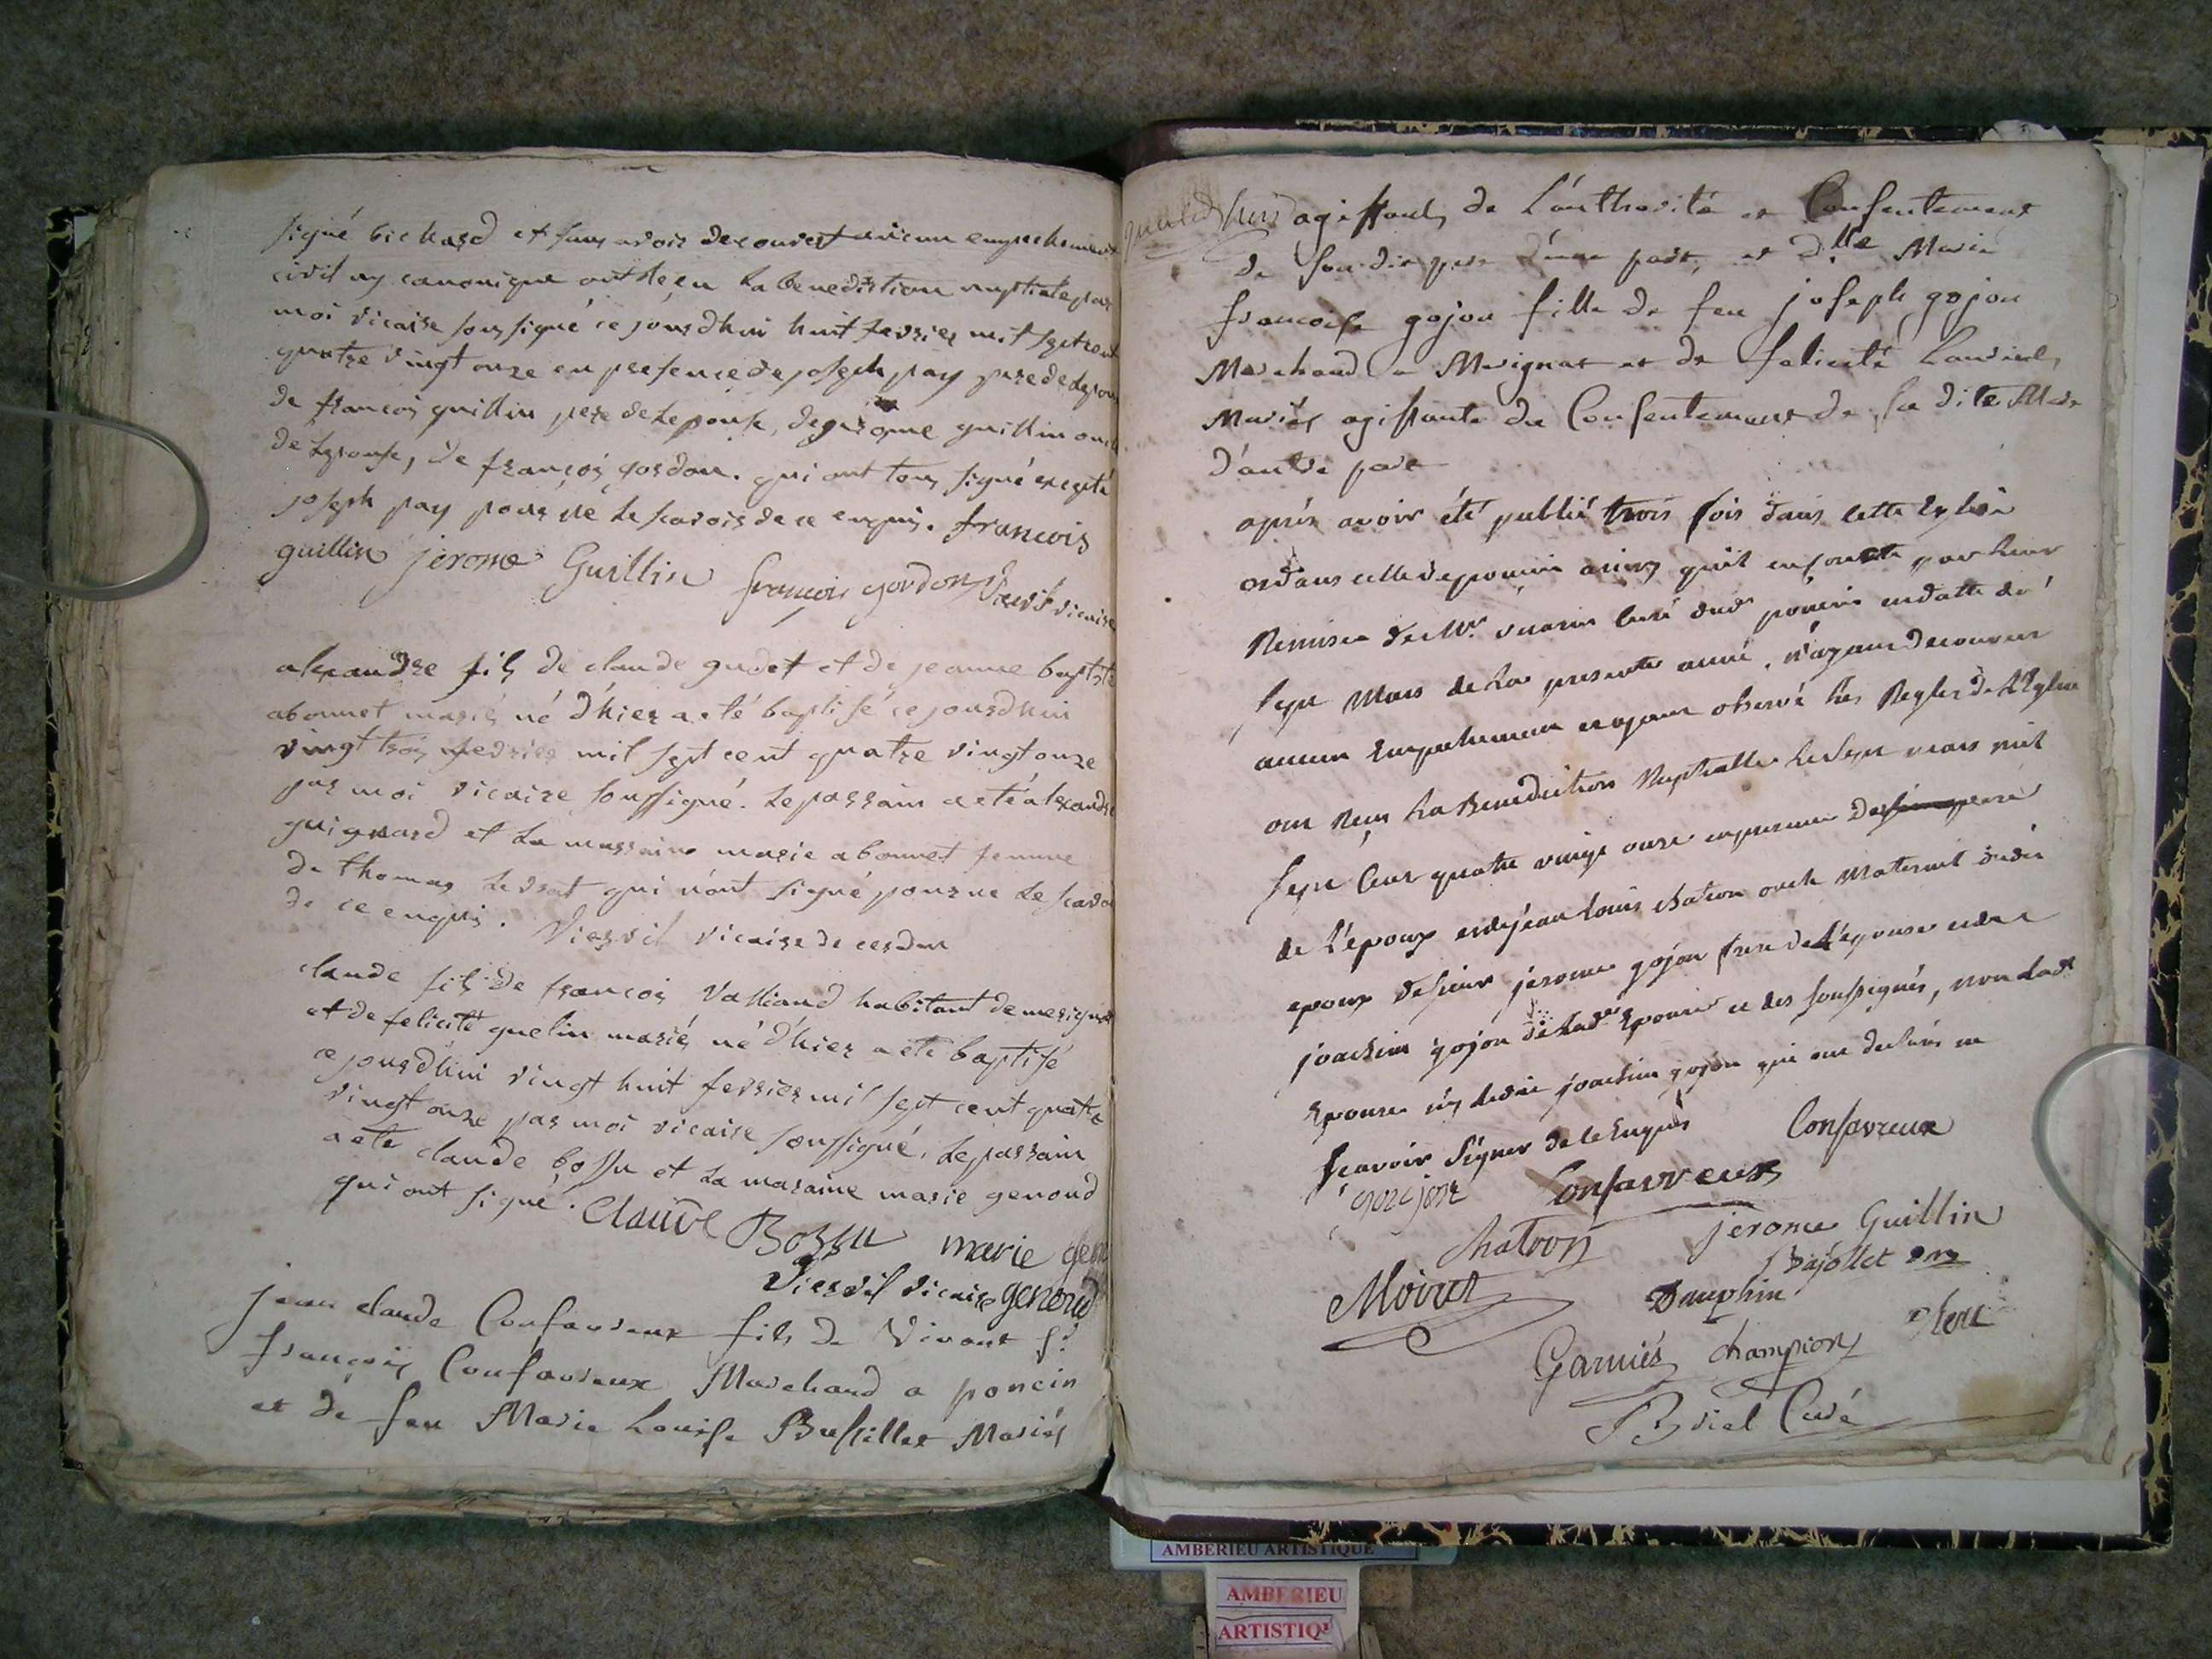 signé bichard et sans avoir decouvert aucun empechement
civil ny canonique ont reçu la benediction nuptiale par
moi vicaire soussigné ce jourdhui huit fevrier mil sept cent
quatre vingt onze en presence de joseph pay pere de lepoux
de françois guillin pere de lepouse, de gerome guillin oncle
de lepouse, de françois gordon. qui ont tous signé excepté
joseph pay pour ne le scavoir de ce enquis. francois
guillin jerome Guillin françois gordon viervil vicaire
alexandre fils de claude gudet et de jeanne baptiste
abonnet mariés né d'hier a eté baptisé ce jourdhui
vingt trois fevrier mil sept cent quatre vingt onze
par moi vicaire soussigné. le parrain a eté alexandre
guignard et la marraine marie abonnet femme
de thomas levrat qui n'ont signé pour ne le scavoir
de ce enquis. Viervil vicaire de cerdon
claude fils de françois Valliand habitant de merignat
et de felicité guelin mariés né d'hier a eté baptisé
ce jourdhui vingt huit fevrier mil sept cent quatre
vingt onze par moi vicaire soussigné. le parrain
a eté claude bossu et la maraine marie genoud
qui ont signé. Claude Bossu marie gen
Viervil vicaire genoud
jean claude Confavreux fils de Vivant sr.
françois Confavreux Marchand a poncin
et de feu Marie Louise Bussillet Mariés
agissant de L'authorité et Consentement
de son dit pere d'une part, et dlle Marie
francoise gojon fille de feu joseph gojon
Marchand a Merignat et de felicité
Mariés agissante du Consentement de sa dite Mere
d'autre part
après avoir été publié trois fois dans cette Eglise
et dans celle de poncin ainsy qu'il en conste par leur
Remise de Mr. curé dud poncin en datte du
sept Mars de la presente année, n'ayant decouvert
aucun Empechement et ayant observé les Regles de L'Eglise
ont Reçu la Benediction Nuptialle le sept mars mil
sept Cent quatre vingt onze en presence du pere
de L'epoux et de jean louis chatron oncle maternel dudit
epoux de sieur jerome gojon frere de L'epouse et de
joachim gojon de lade Epouse et des soussignés, non lade
Epouse ny ledit joachim gojon qui ont declarés ne
sçavoir Signer de ce Enquis Confavreux
gorejon Confavreux
Chatron jerome Guillin
Moiret Dauphin Bajollet
Garnier champion
Briel Curé
AMBERIEU ARTISTIQUE
AMBERIEU
ARTISTIQ